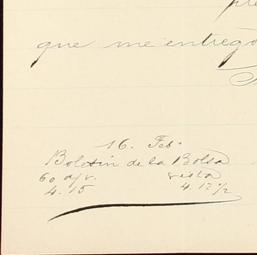 que me entregó
16. Feb.
Boletin de la Bolsa
60 d/v. vista
4. 15 4. 17 1/2